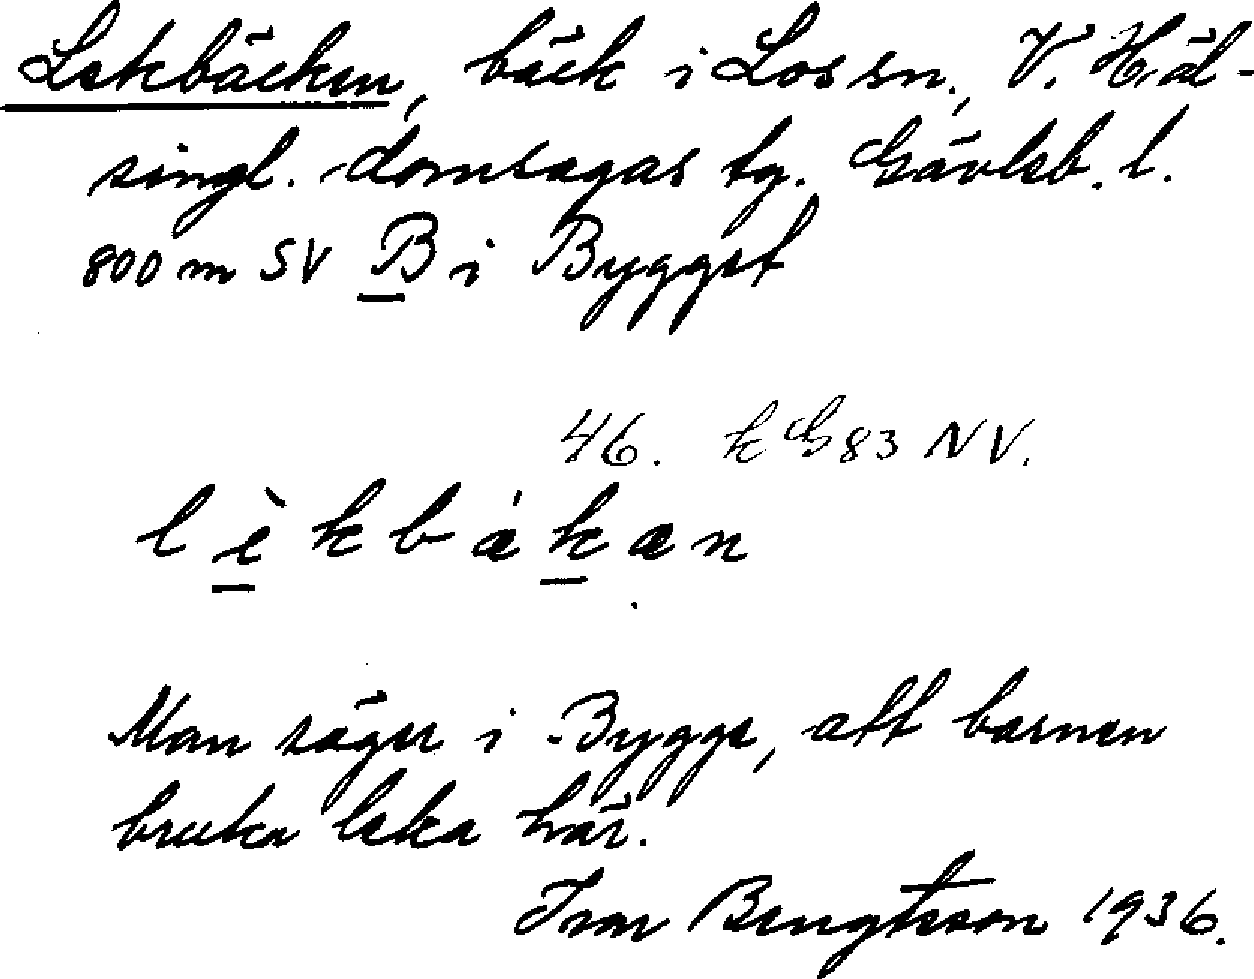 Lekbäcken, bäck i Los sn., V. Häl-
singl. domsagas tg. Gävleb. l.
800 m SV B i Bygget
46. k G83 NV.
l è k b ǽ k æ n
Man säger i Bygge, att barnen
bruka leka här.
Ivar Bengtsson 1936.